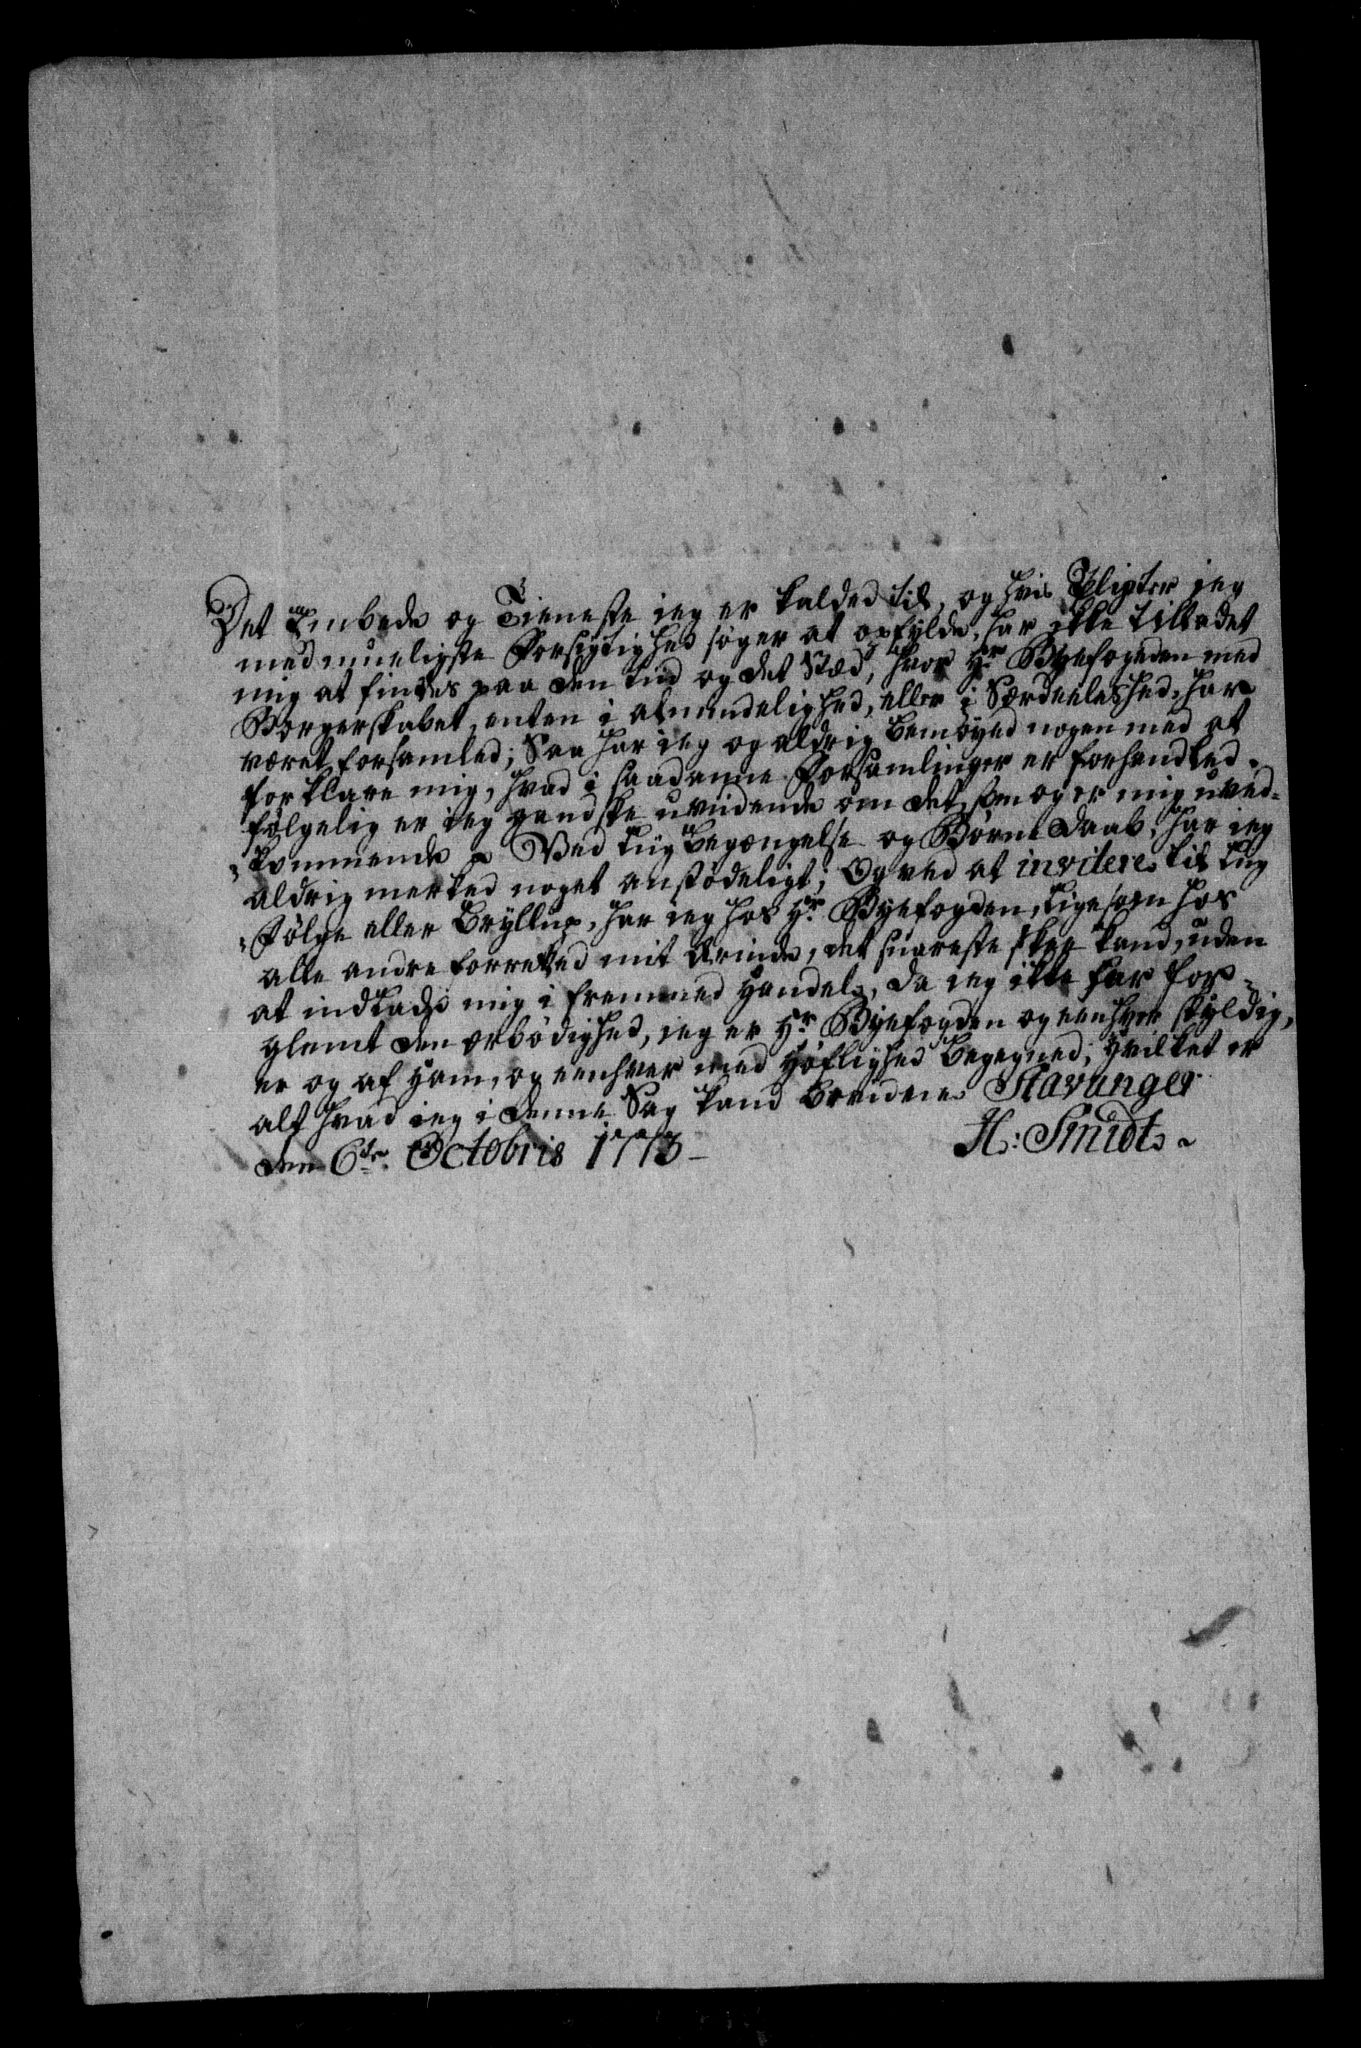 Det Embede og Tieneste ieg er kalded til, og hvis Pligter ieg
med mueligste Forsigtighed søger at opfylde, har ikke tilladet
mig at findes paa den tid og det Stæd, hvor Hr Byefogeden med
Borgerskabet, enten i almindelighed, eller i Særdeeleshed, har
været forsamled; Saa har ieg og aldrig bemøyed nogen med at
forklare mig, hvad i saadanne Forsamlinger er forhandled.
følgelig er ieg gandske uvidende om det, som og er mig uved-
kommende. Ved Liig Begængelse og Børne Daab, har ieg
aldrig merked noget anstødeligt; Og ved at invitere til Liig
Følge eller Bryllup, har ieg hos Hr Byefogden, ligesom hos
alle andre forretted mit Ærinde, det snareste skee kand, uden
at indlade mig i fremmed Handel, da ieg ikke har for-
glemt den ærbødighed, ieg er Hr Byefogden og eenhver skyldig,
er og af Ham, og eenhver med Høflighed begegned; Hvilket er
alt hvad ieg i denne Sag kand bevidne. Stavanger
den 6te Octobris 1773 - H: Smidt